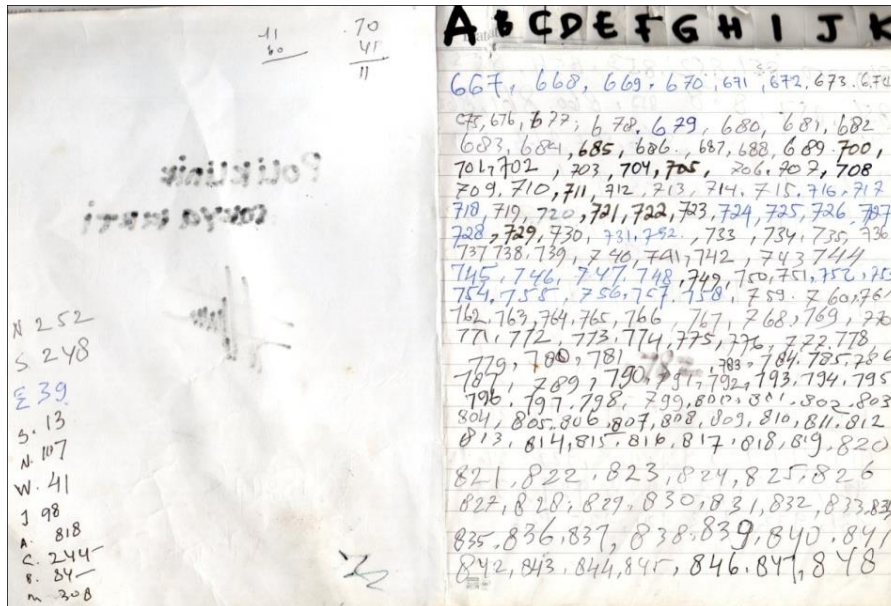 11
60
.70
41
11
Poliklinik
N 252
S. 248
E 39
S. 13
N. 107
W. 41
J 98
A. 818
C. 244
B. 84
m 308
A B C D E F G H I J K
667, 668, 669. 670, 671, 672. 673. 674
675, 676, 677, 678. 679, 680, 681, 682
683, 684, 685, 686, 687, 688, 689. 700,
701, 702, 703, 704, 705, 706. 707, 708
709, 710, 711, 712, 713, 714. 715. 716, 717
718, 719, 720, 721, 722, 723, 724, 725, 726, 727
728, 729, 730, 731, 732, 733, 734, 735, 736
737 738. 739, 740, 741, 742, 743 744
745, 746, 747, 748, 749, 750, 751, 752, 753
754. 755, 756. 757. 758, 759. 760. 761
762, 763, 764, 765, 766 767, 768, 769, 770
771, 772, 773, 774, 775, 776, 777. 778
779, 780, 781 782, 783, 784. 785, 786
787, 789, 790, 791, 792, 793. 794. 795
796. 797. 798, 799, 800, 801, 802, 803
804, 805. 806, 807, 808, 809, 810, 811. 812
813, 814, 815. 816, 817, 818, 819. 820
821, 822. 823, 824, 825. 826
827, 828, 829. 830. 831, 832, 833. 834
835. 836. 837, 838. 839. 840. 841
842, 843. 844, 845, 846. 847, 848